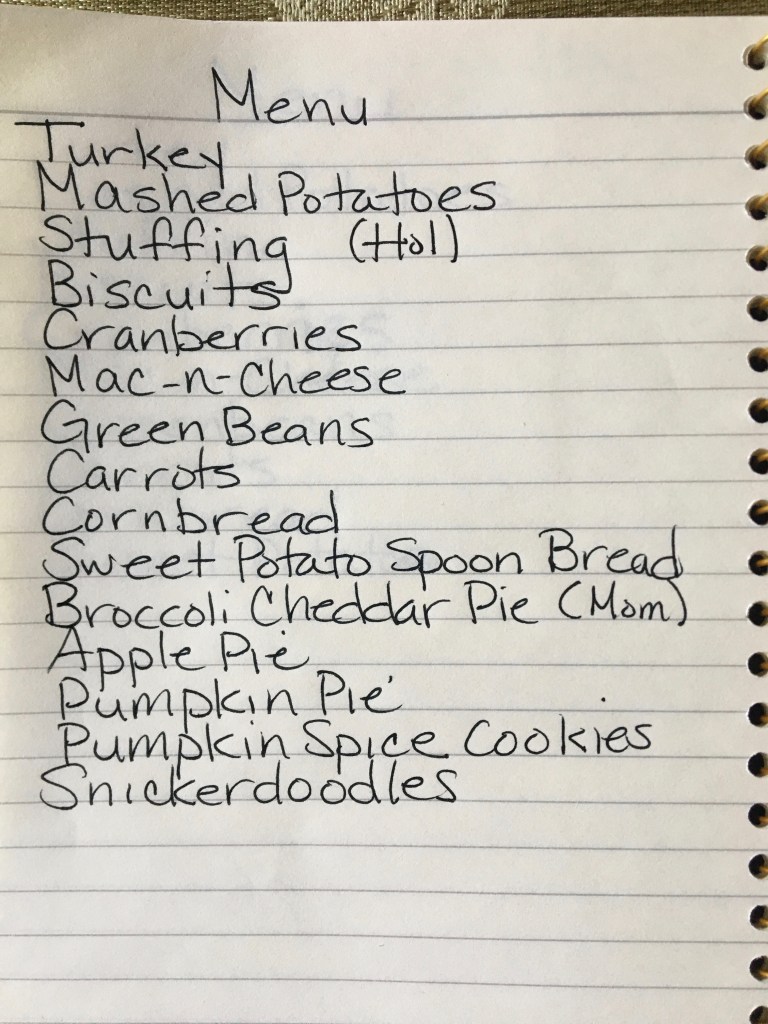 Menu
Turkey
Mashed Potatoes
Stuffing (Hol)
Biscuits
Cranberries
Mac-n-Cheese
Green Beans
Carrots
Cornbread
Sweet Potato Spoon Bread
Broccoli Cheddar Pie (Mom)
Apple Pie
Pumpkin Pie
Pumpkin Spice Cookies
Snickerdoodles